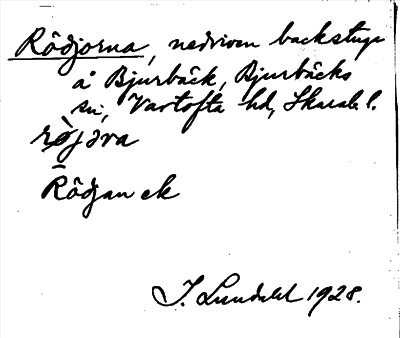 Rödjorna, nedriven backstuga
å Bjurbäck, Bjurbäcks
sn, Vartofta hd, Skarab. l.
rø̀jəra
Rödjan ek
J. Lundahl 1928.